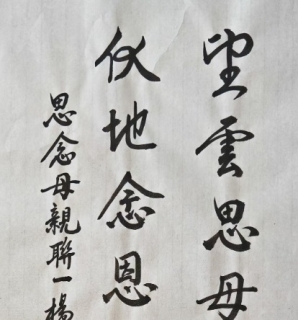 望雲思母
伏地念恩
思念母親聯一楊